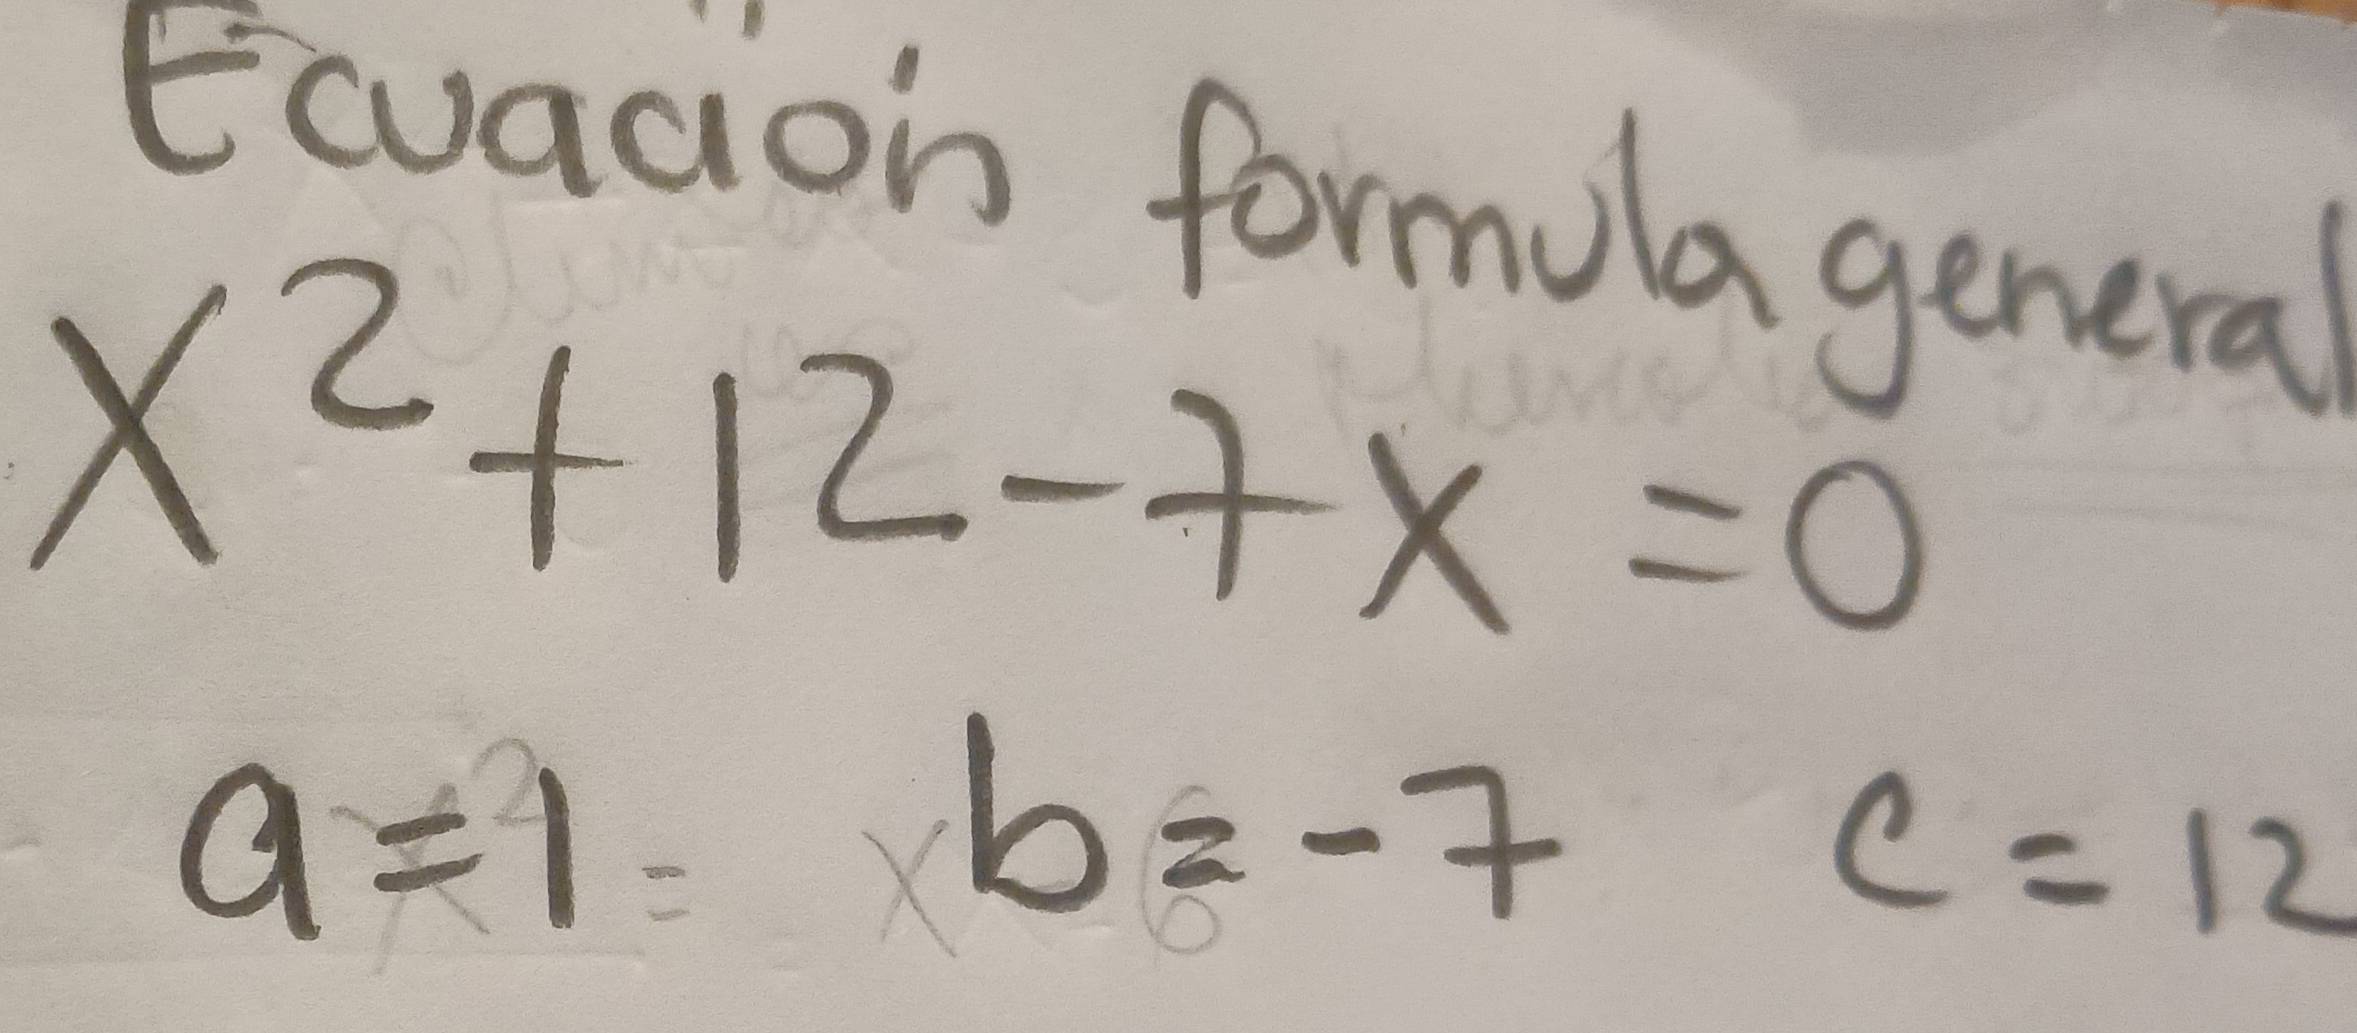 Ecuación formula general
x² + 12 - 7x = 0
a = 1 b = -7 c = 12